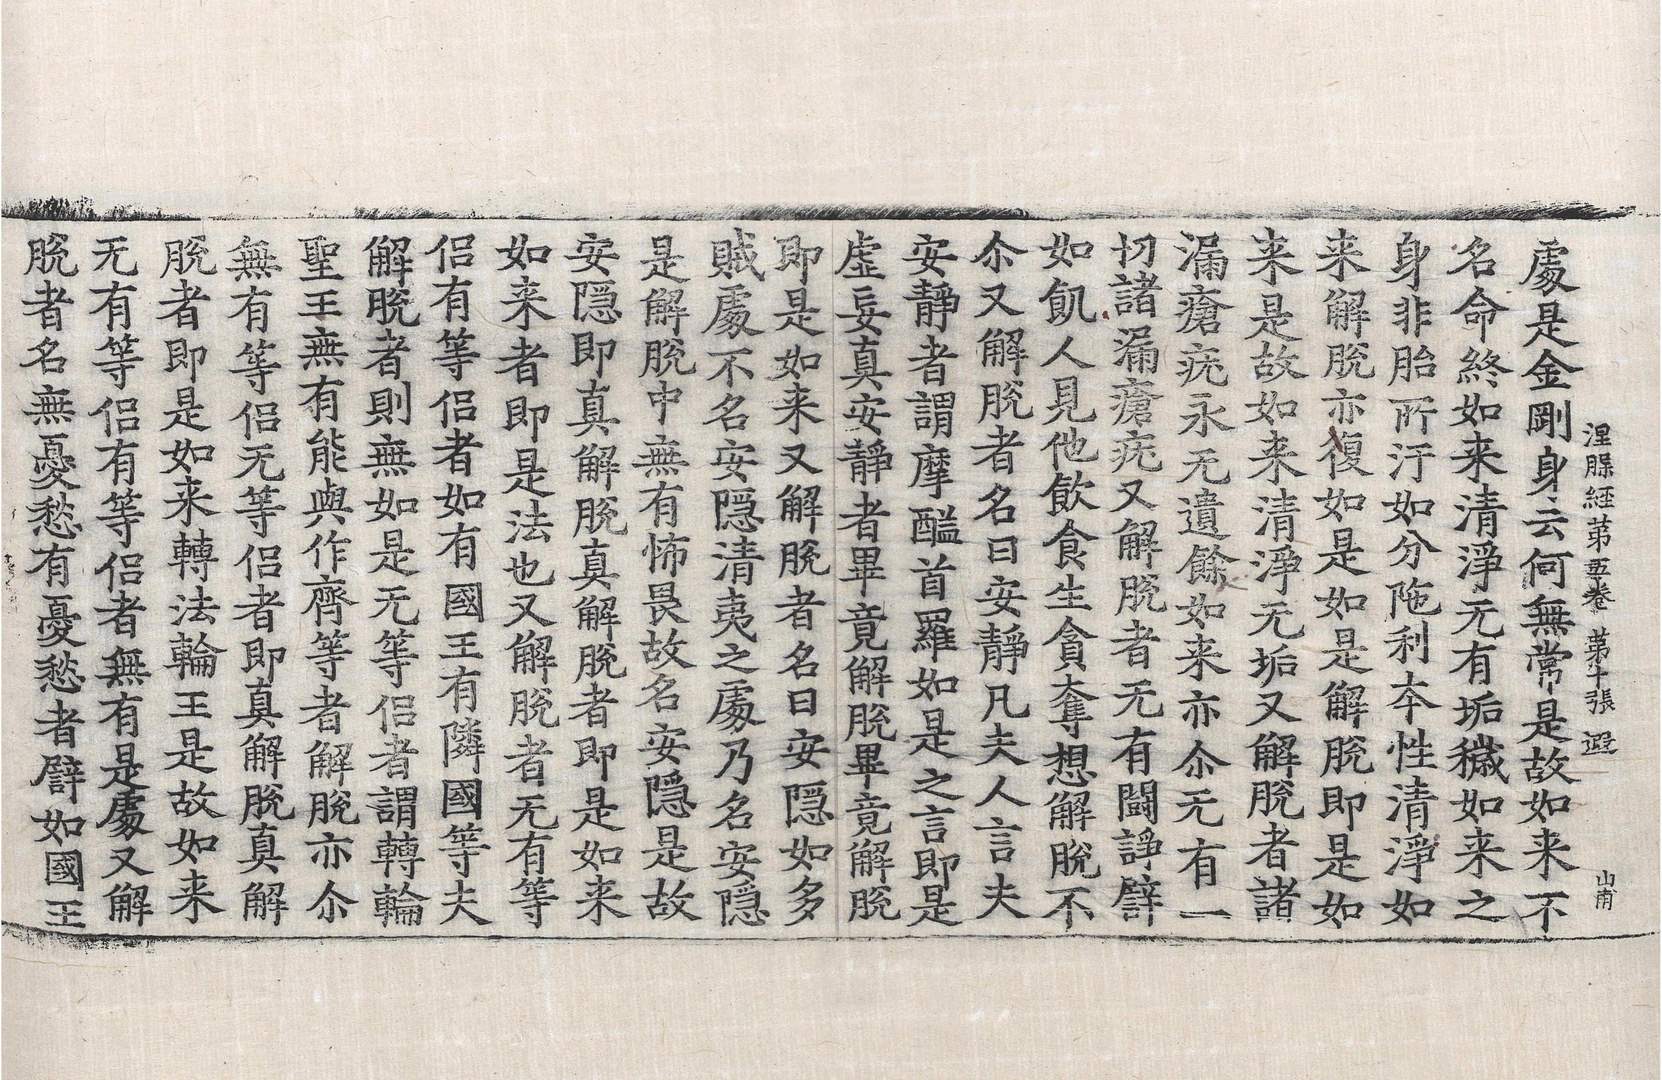 涅槃経第五卷 第十張 遐
山甫
處是金剛身云何無常是故如来不
名命終如来清淨无有垢穢如来之
身非胎所汙如分陁利夲性清淨如
来解脫亦復如是如是解脫即是如
来是故如来清淨无垢又解脫者諸
漏瘡疣永无遺餘如来亦尒无有一
切諸漏瘡疣又解脫者无有鬪諍譬
如飢人見他飲食生貪奪想解脫不
尒又解脫者名曰安靜凡夫人言夫
安靜者謂摩醯首羅如是之言即是
虛妄真安靜者畢竟解脫畢竟解脫
即是如来又解脫者名曰安隱如多
賊處不名安隱清夷之處乃名安隱
是解脫中無有怖畏故名安隱是故
安隱即真解脫真解脫者即是如来
如来者即是法也又解脫者无有等
侣有等侣者如有國王有隣國等夫
解脫者則無如是无等侣者謂轉輪
聖王無有能與作齊等者解脫亦尒
無有等侣无等侣者即真解脫真解
脫者即是如来轉法輪王是故如来
无有等侣有等侣者無有是處又解
脫者名無憂愁有憂愁者譬如國王